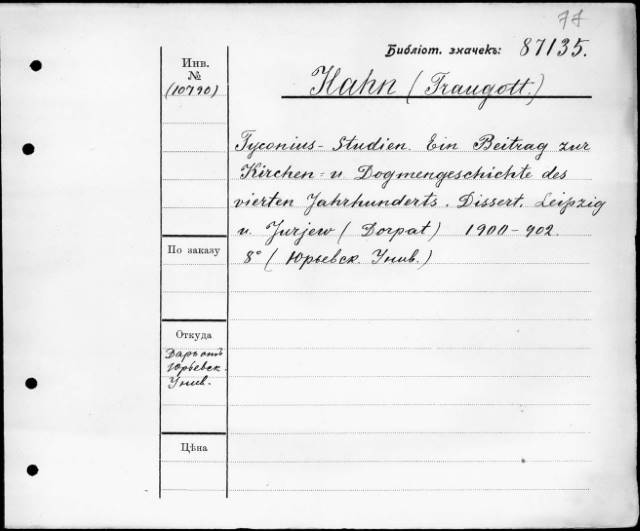 77
Библіот. значекъ: 87135.
Инв.
№
(10790)
Hahn (Traugott.)
Tyconius-Studien. Ein Beitrag zur
Kirchen- u Dogmengeschichte des
vierten Jahrhunderts. Dissert. Leipzig
u. Jurjew (Dorpat) 1900-902.
8° (Юрьевск. Унив.)
По заказу
Откуда
Даръ отъ
Юрьевск.
Унив.
Цѣна